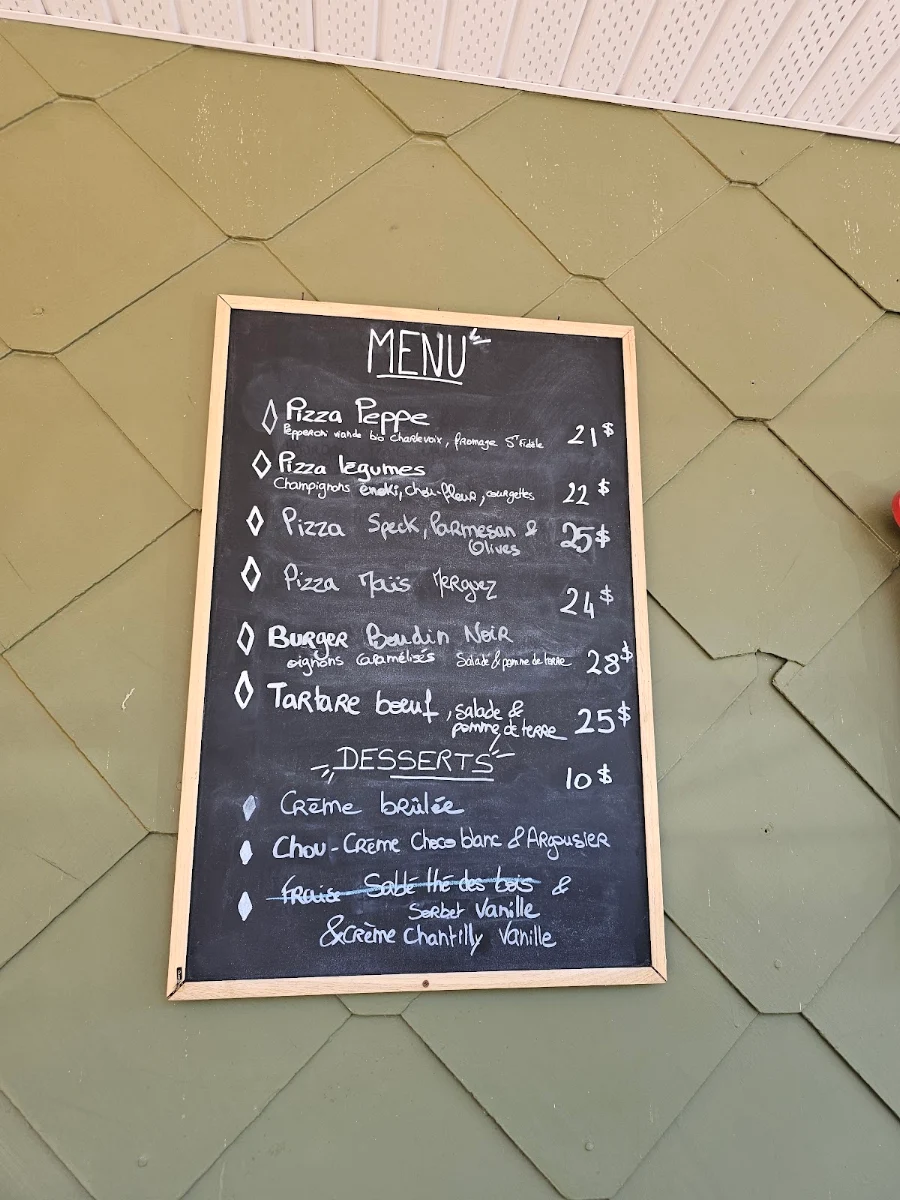 MENU
Pizza Peppe
Pepperoni viande bio Charlevoix, fromage St Fidèle 21$
Pizza légumes
Champignons enoki, chou-fleur, courgettes 22$
Pizza Speck, Parmesan &
Olives 25$
Pizza Maïs Merguez
24$
Burger Boudin Noir
oignons caramélisés Salade & pomme de terre 28$
Tartare bœuf, salade &
pomme de terre 25$
DESSERTS
10$
Crème brûlée
Chou-Crème Choco blanc & Argousier
Fraise Sablé thé des bois &
Sorbet Vanille
& Crème Chantilly Vanille